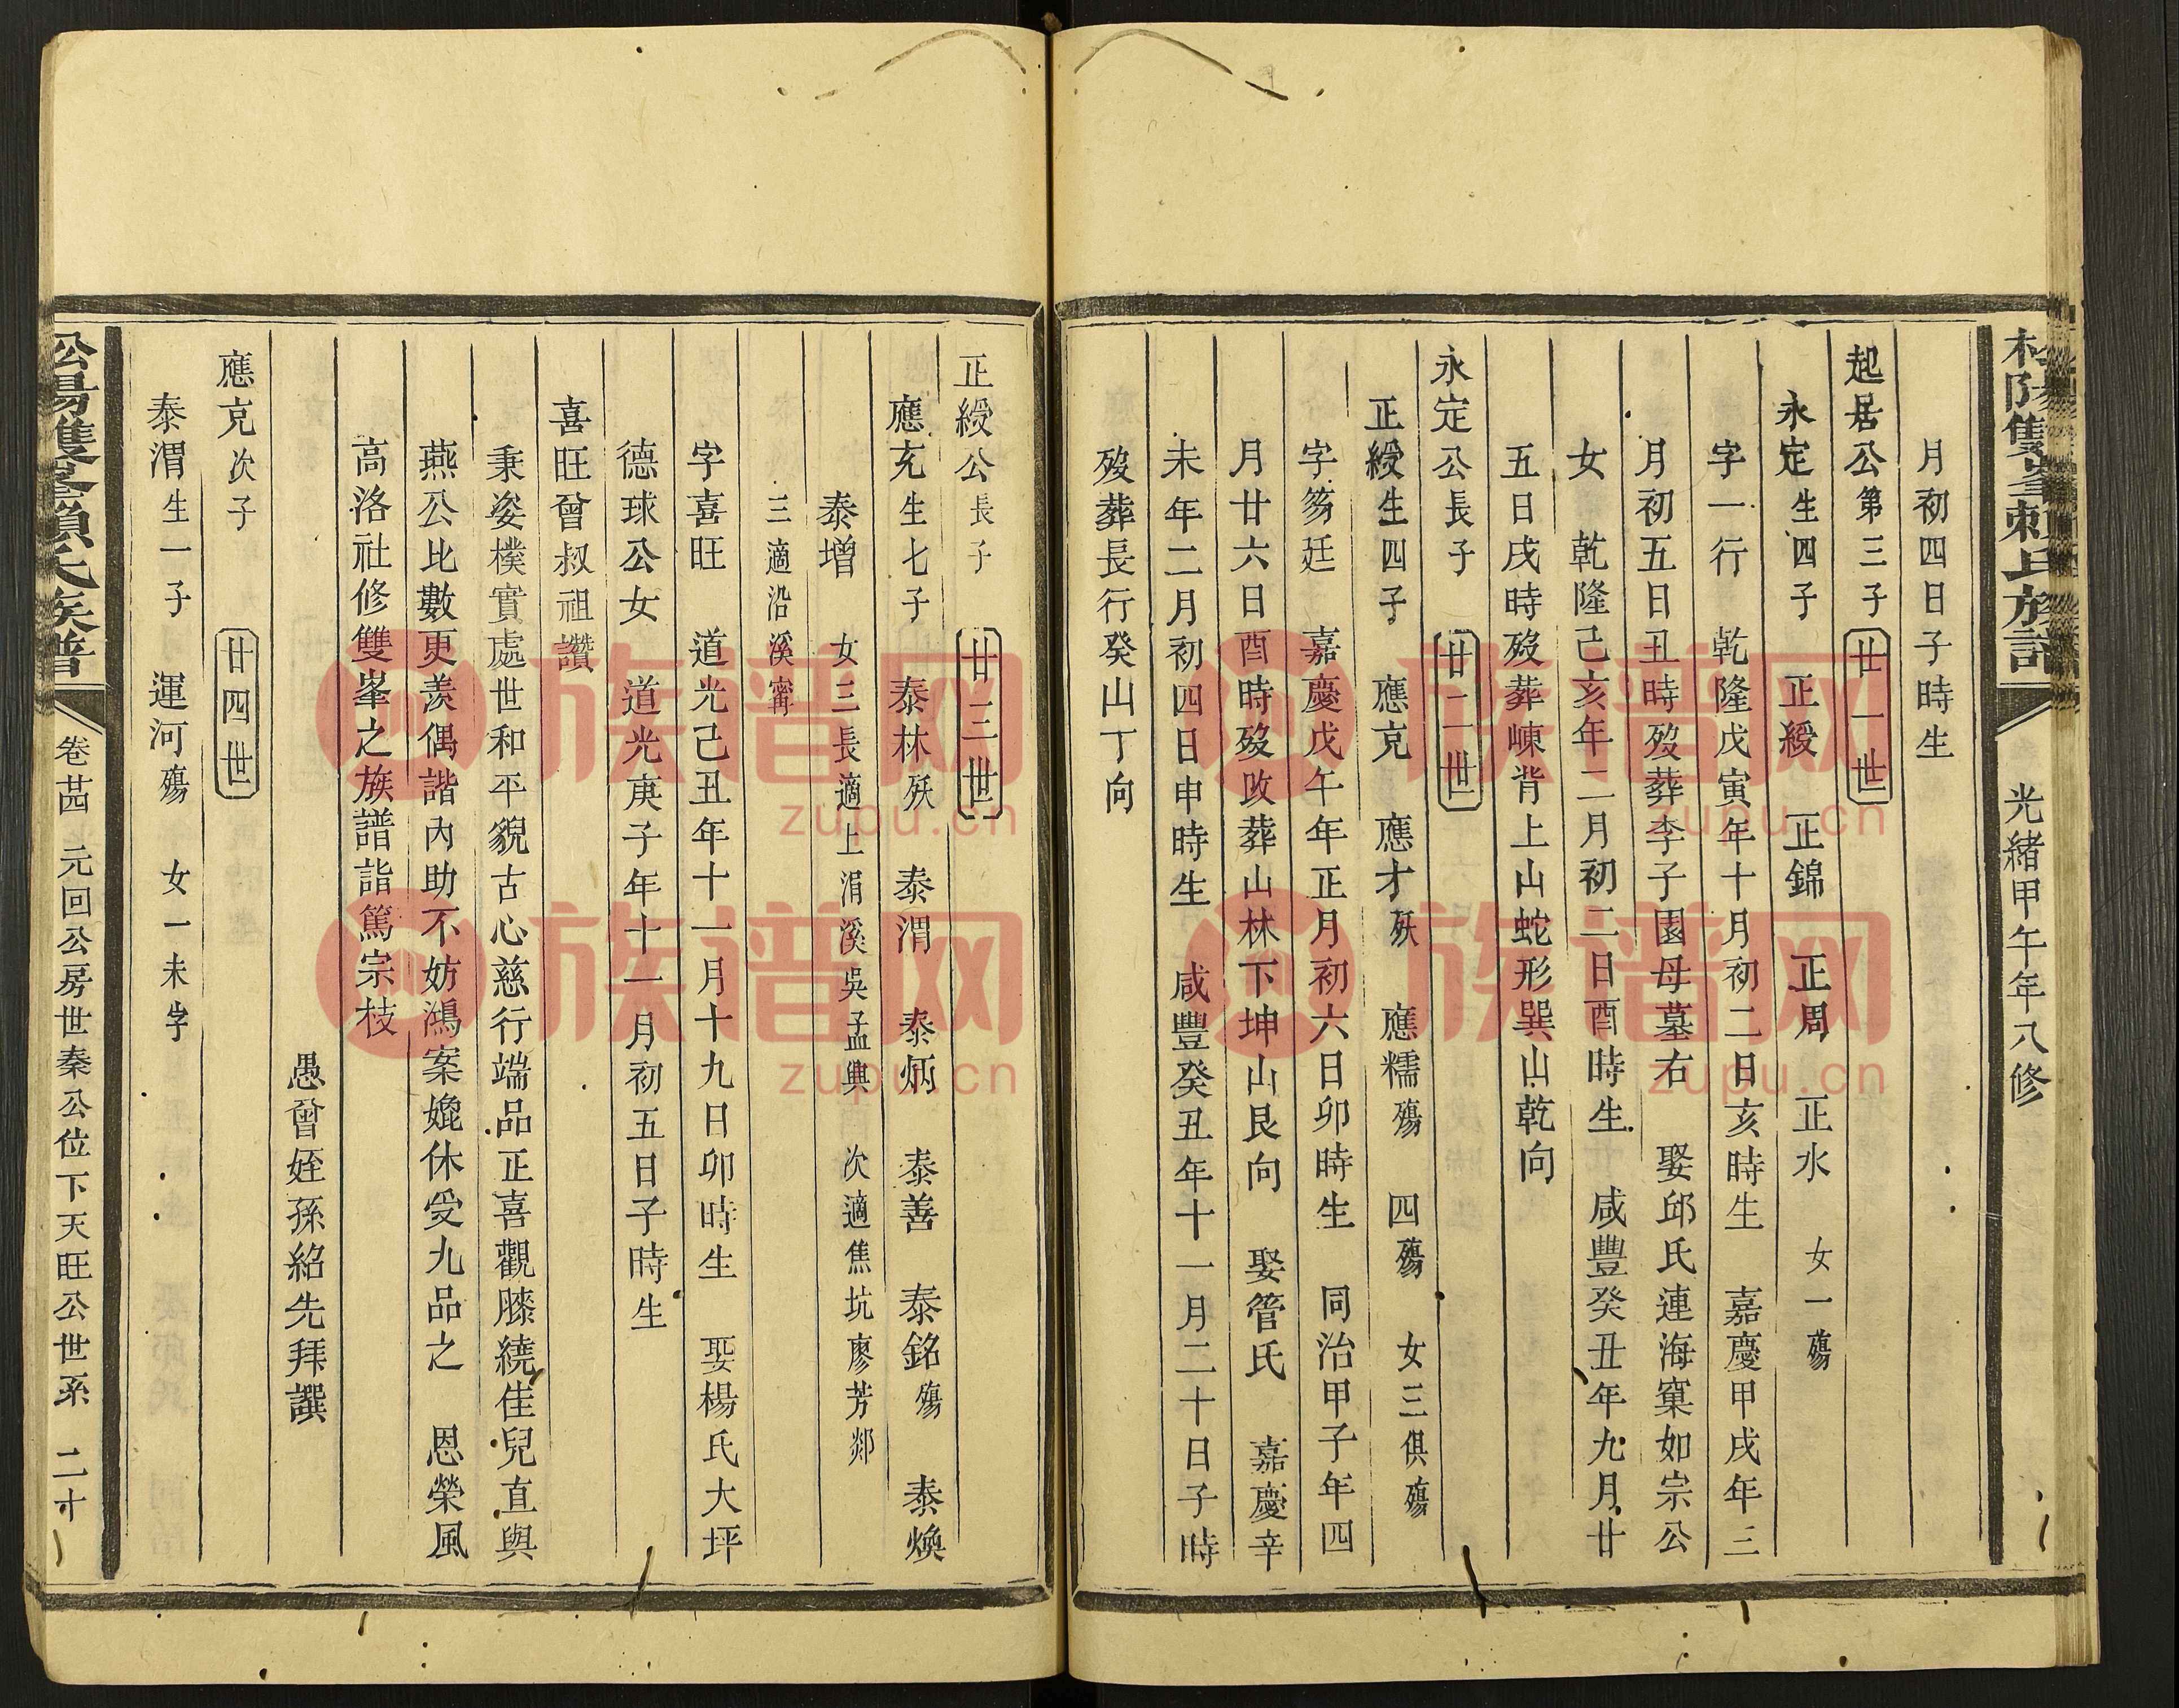 松陽雙峯賴氏族譜 光緒甲午年八修
月初四日子時生
起居公第三子 廿一世
永定生四子 正綬 正錦 正周 正水 女一殤
字一行 乾隆戊寅年十月初二日亥時生 嘉慶甲戌年三
月初五日丑時歿葬李子園母墓右 娶邱氏連海窠如宗公
女 乾隆己亥年二月初二日酉時生 咸豐癸丑年九月廿
五日戌時歿葬崠背上山蛇形巽山乾向
永定公長子 廿二世
正綬生四子 應克 應才殀 應糯殤 四殤 女三俱殤
字笏廷 嘉慶戊午年正月初六日卯時生 同治甲子年四
月廿六日酉時歿改葬山林下坤山艮向 娶管氏 嘉慶辛
未年二月初四日申時生 咸豐癸丑年十一月二十日子時
歿葬長行癸山丁向
正綬公長子 廿三世
應克生七子 泰林殀 泰渭 泰炳 泰善 泰銘殤 泰煥
泰增 女三長適上涓溪吳孟興 次適焦坑廖芳郯
三適沿溪甯
字喜旺 道光己丑年十一月十九日卯時生 娶楊氏大坪
德球公女 道光庚子年十一月初五日子時生
喜旺曾叔祖讚
秉姿樸實處世和平貌古心慈行端品正喜觀膝繞佳兒直與
燕公比數更羨偶諧內助不妨鴻案媲休受九品之 恩榮風
高洛社修雙峯之族譜誼篤宗枝
愚曾姪孫紹先拜譔
應克次子 廿四世
泰渭生一子 運河殤 女一未字
松陽雙峯賴氏族譜 卷廿四 元回公房世秦公位下天旺公世系 二十
族谱网
zupu.cn
族谱网
zupu.cn
族谱网
zupu.cn
族谱网
zupu.cn